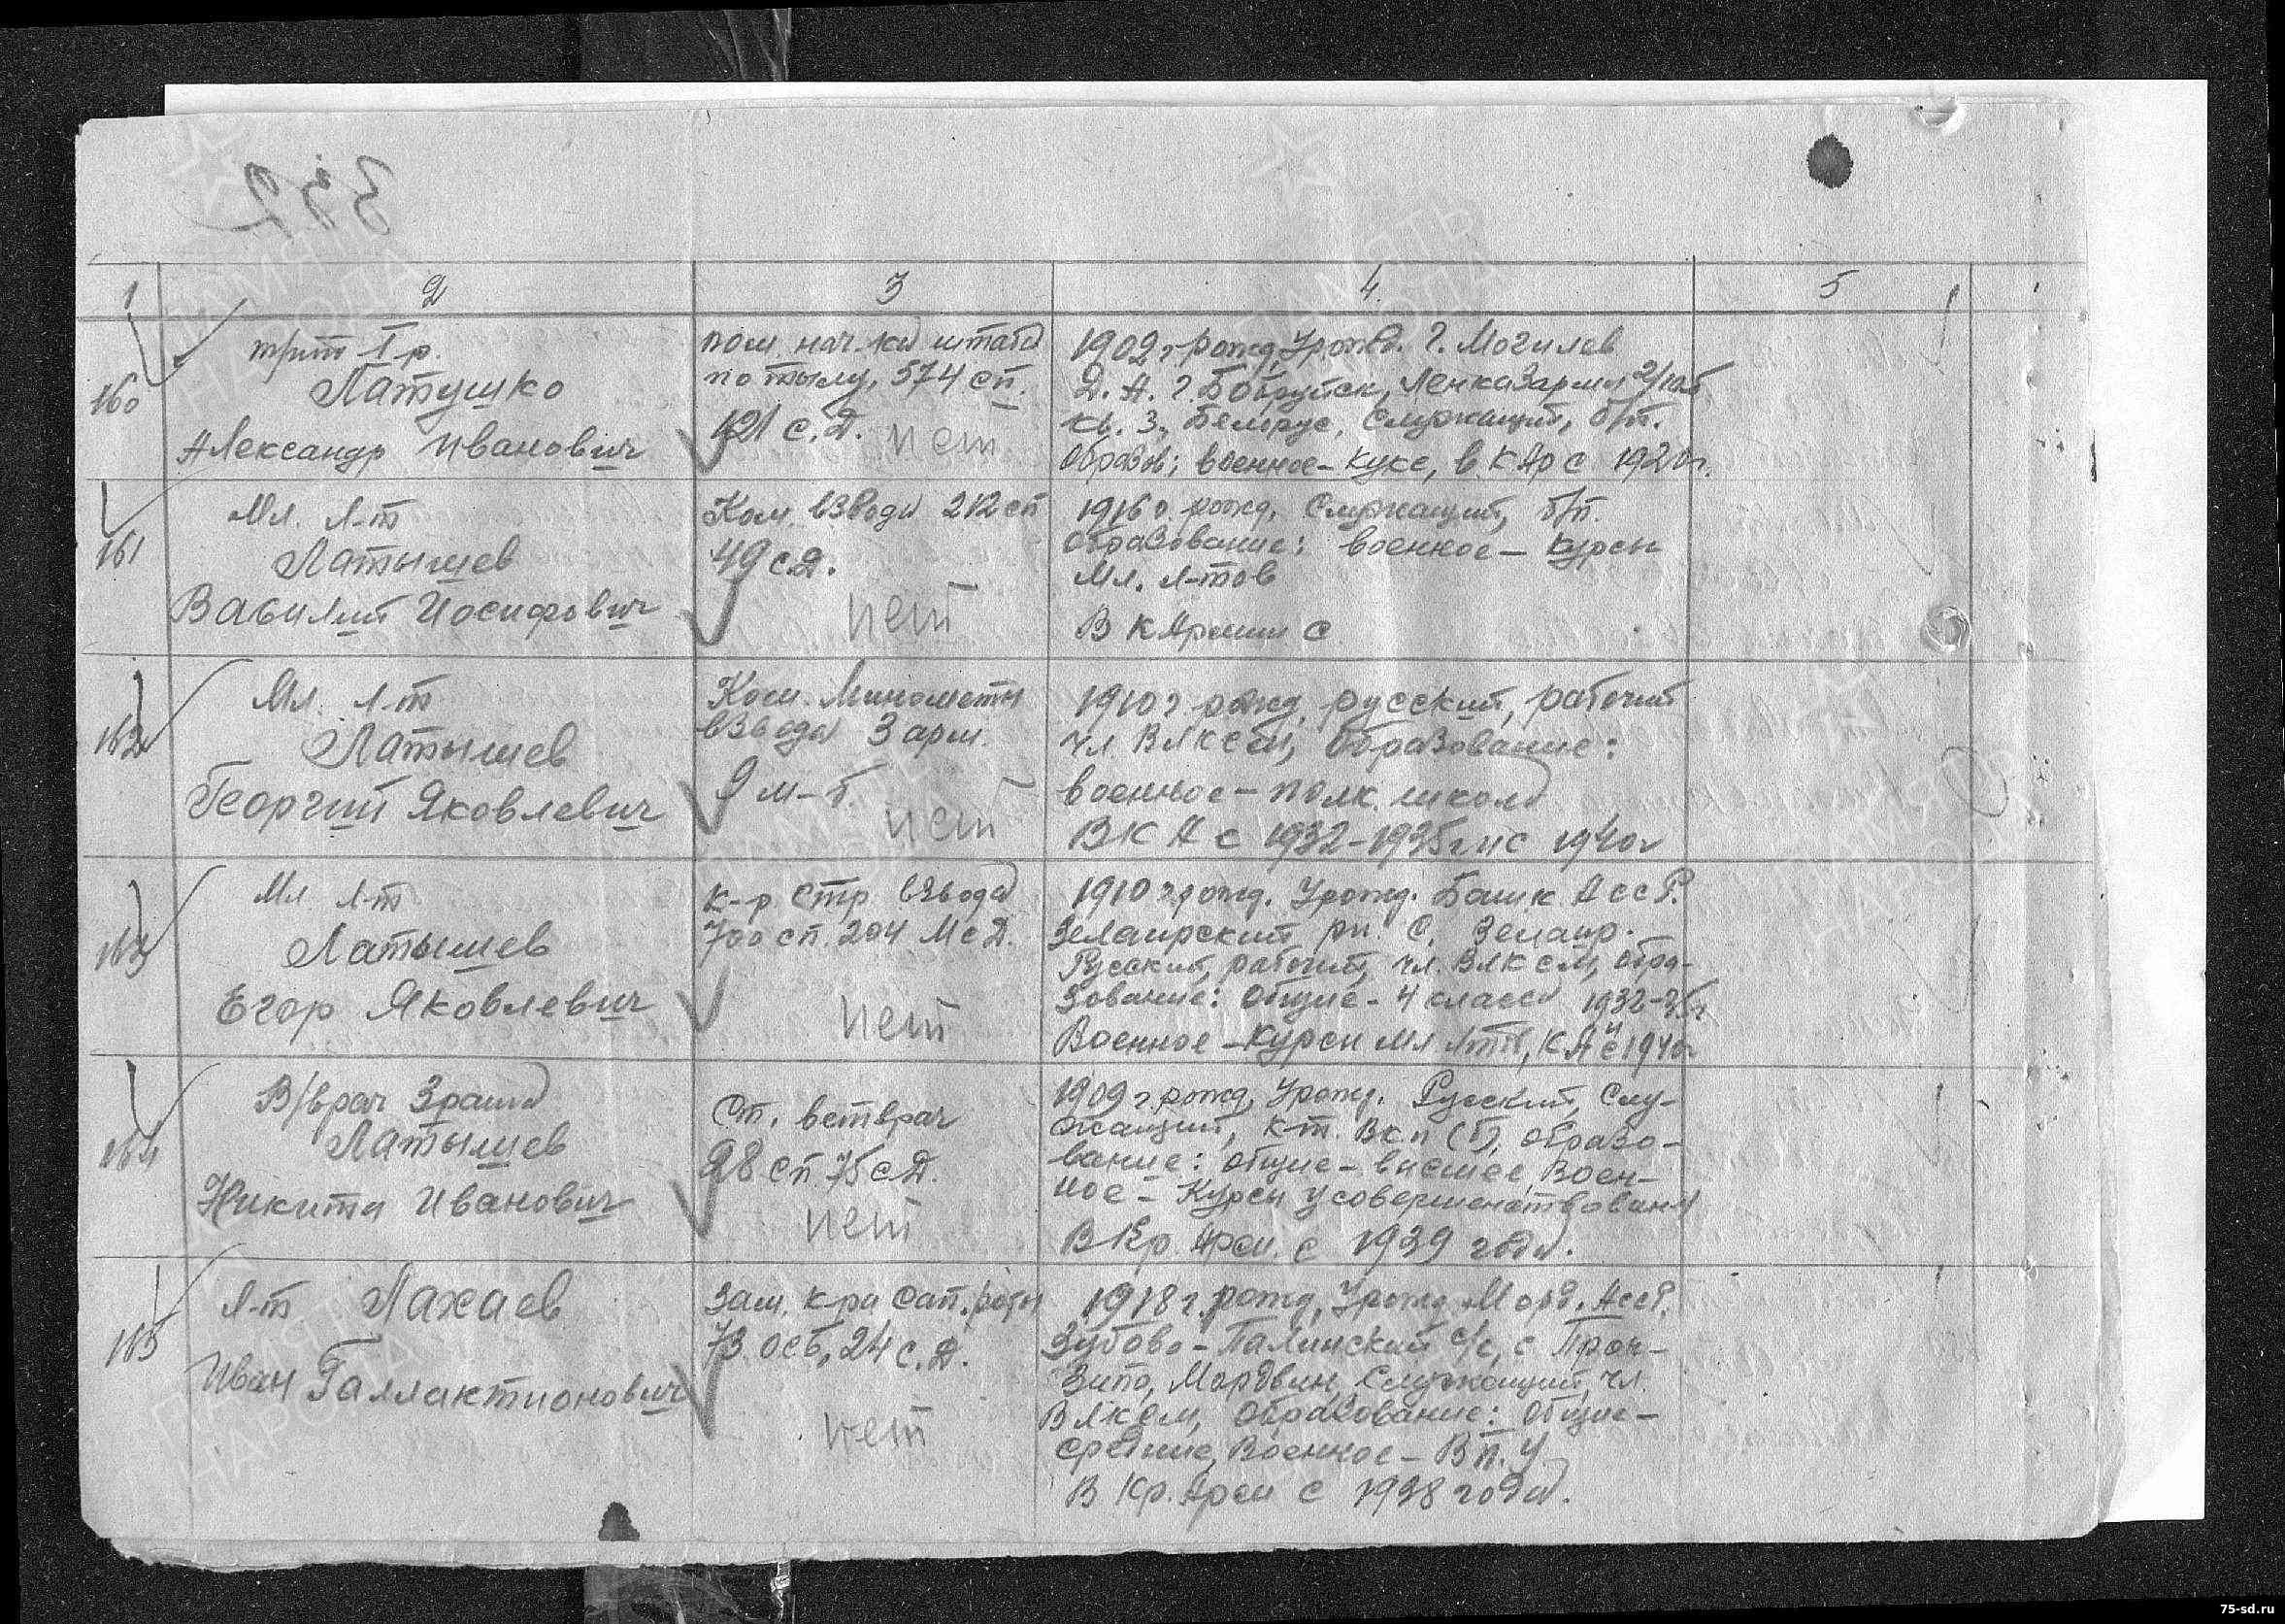 1 2 3 4. 5
160
Латушко
Александр Иванович
пом. нач-ка штаба
по тылу, 574 сп.
121 с.д.
нет
1902 г. рожд. Урожд. г. Могилев
Д. А. г. Бобруйск,
кв. 3, Белорус, Служащий, б/п.
Образов: военное - Куке, в К Ар с 1920г.
161
Мл. л-т
Латышев
Василий Иосифович
Ком. взвода 212 сп
49 с.д.
нет
1916 г. рожд. Служащий, б/п.
образование: военное - курсы
Мл. л-тов
В К Армии с
162
Мл. л-т
Латышев
Георгий Яковлевич
Ком. Минометн
взвода 3 арм.
9 м-б.
нет
1910 г. рожд. русский, рабочий
чл. ВЛКСМ, Образование:
военное - полк. школа
В К А с 1932-1935г и с 1940г
163
Мл л-т
Латышев
Егор Яковлевич
к-р стр взвода
700 сп. 204 МсД.
нет
1910 г. рожд. Урожд. Башк АССР.
Зелаирский рн. С. Зелаир.
Русский, рабочий, чл. ВЛКСМ, обра-
зование: Общее - 4 класса 1932-35г
Военное - Курсы мл л-тов, КА и с 1940г
164
В/врач 3 ранга
Латышев
Никита Иванович
Ст. ветврач
28 сп 75 с.д.
нет
1909 г. рожд, Урожд. Русский, Слу-
жащий, к-т. ВКП(б), образо-
вание: общее - высшее, Воен-
ное - Курсы усовершенствован
В Кр. Арм. с 1939 года.
165
Л-т Лахаев
Иван Галлактионович
Зам. к-ра сап. роты
73 осб, 24 с.д.
нет
1918 г. рожд. Урожд. Морд. АССР.
Зубово-Палинский с/с, с Прон-
Зипо, Мордвин, Служащий, чл.
ВЛКСМ, Образование: Общее -
среднее, Военное - В п. У
В Кр. Арм с 1938 года.
ПАМЯТЬ
НАРОДА
75-sd.ru